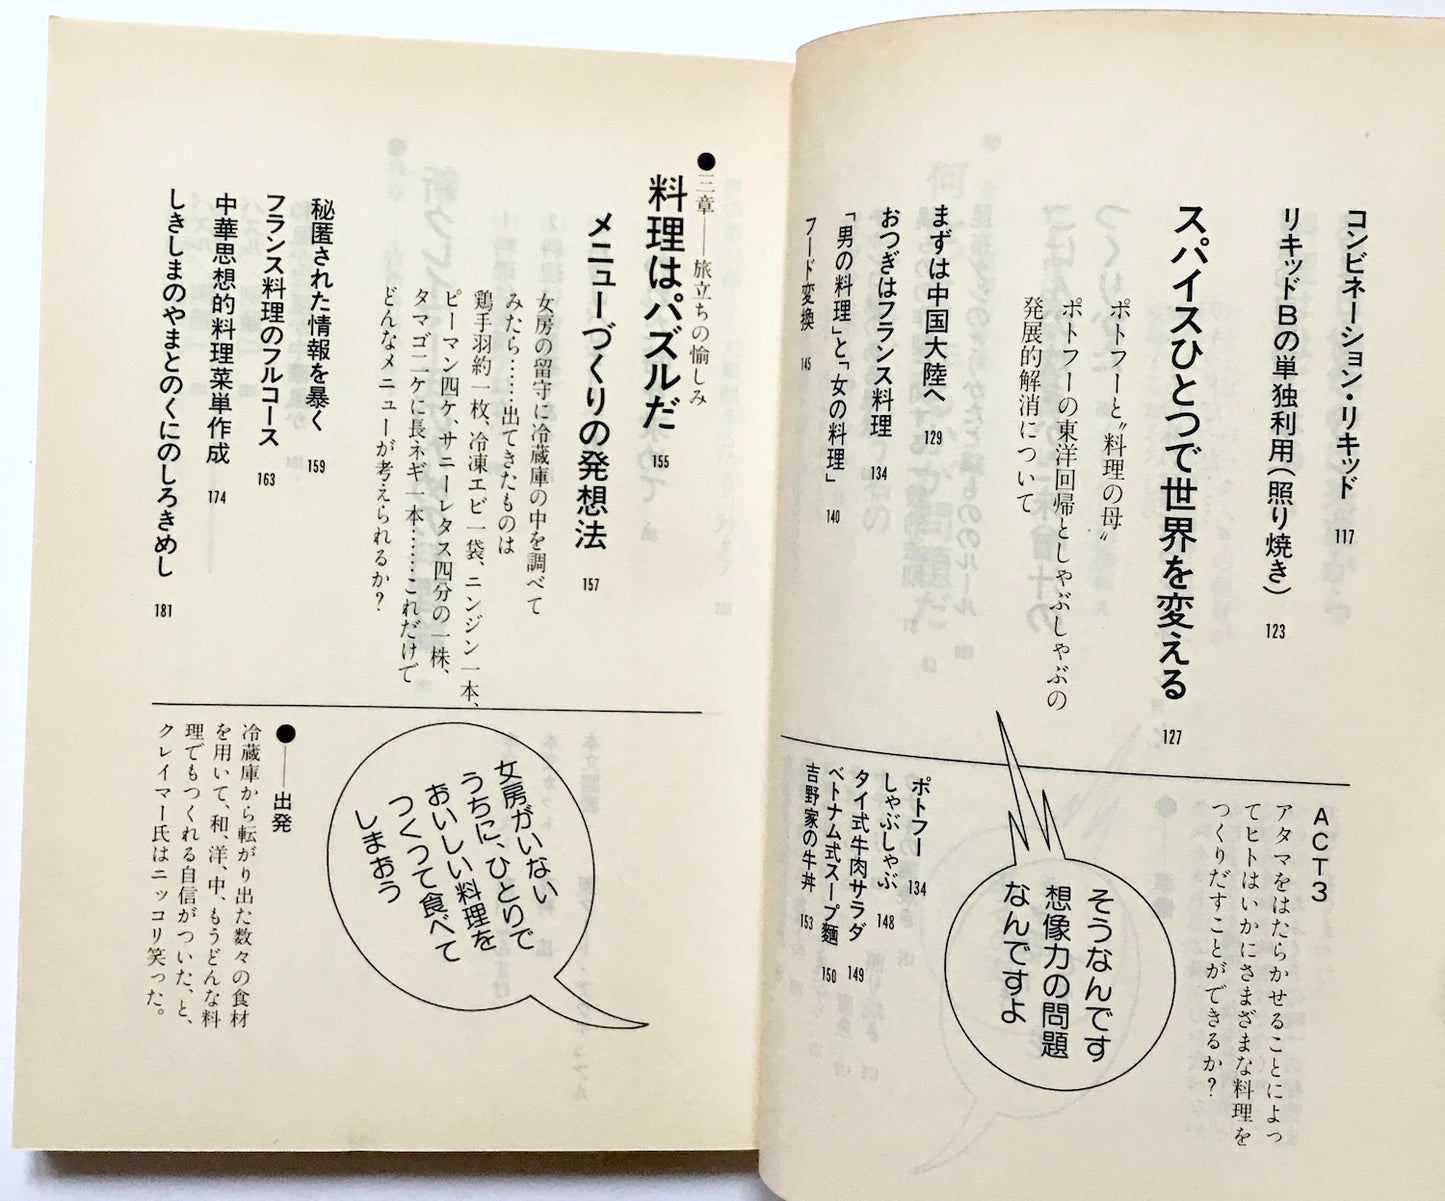 コンビネーション・リキッド 117
リキッドBの単独利用(照り焼き) 123
スパイスひとつで世界を変える 127
ポトフーと〝料理の母〟
ポトフーの東洋回帰としゃぶしゃぶの
発展的解消について
まずは中国大陸へ 129
おつぎはフランス料理 134
「男の料理」と「女の料理」 140
フード変換 145
ACT3
アタマをはたらかせることによっ
てヒトはいかにさまざまな料理を
つくりだすことができるか?
そうなんです
想像力の問題
なんですよ
ポトフー 134
しゃぶしゃぶ 148
タイ式牛肉サラダ 149
ベトナム式スープ麺 150
吉野家の牛丼 153
●三章——旅立ちの愉しみ
料理はパズルだ 155
メニューづくりの発想法 157
女房の留守に冷蔵庫の中を調べて
みたら……出てきたものは
鶏手羽約一枚、冷凍エビ一袋、ニンジン一本、
ピーマン四ケ、サニーレタス四分の一株、
タマゴ二ケに長ネギ一本……これだけで
どんなメニューが考えられるか?
秘匿された情報を暴く 159
フランス料理のフルコース 163
中華思想的料理菜単作成 174
しきしまのやまとのくにのしろきめし 181
女房がいない
うちに、ひとりで
おいしい料理を
つくって食べて
しまおう
●——出発
冷蔵庫から転がり出た数々の食材
を用いて、和、洋、中、もうどんな料
理でもつくれる自信がついた、と、
クレイマー氏はニッコリ笑った。